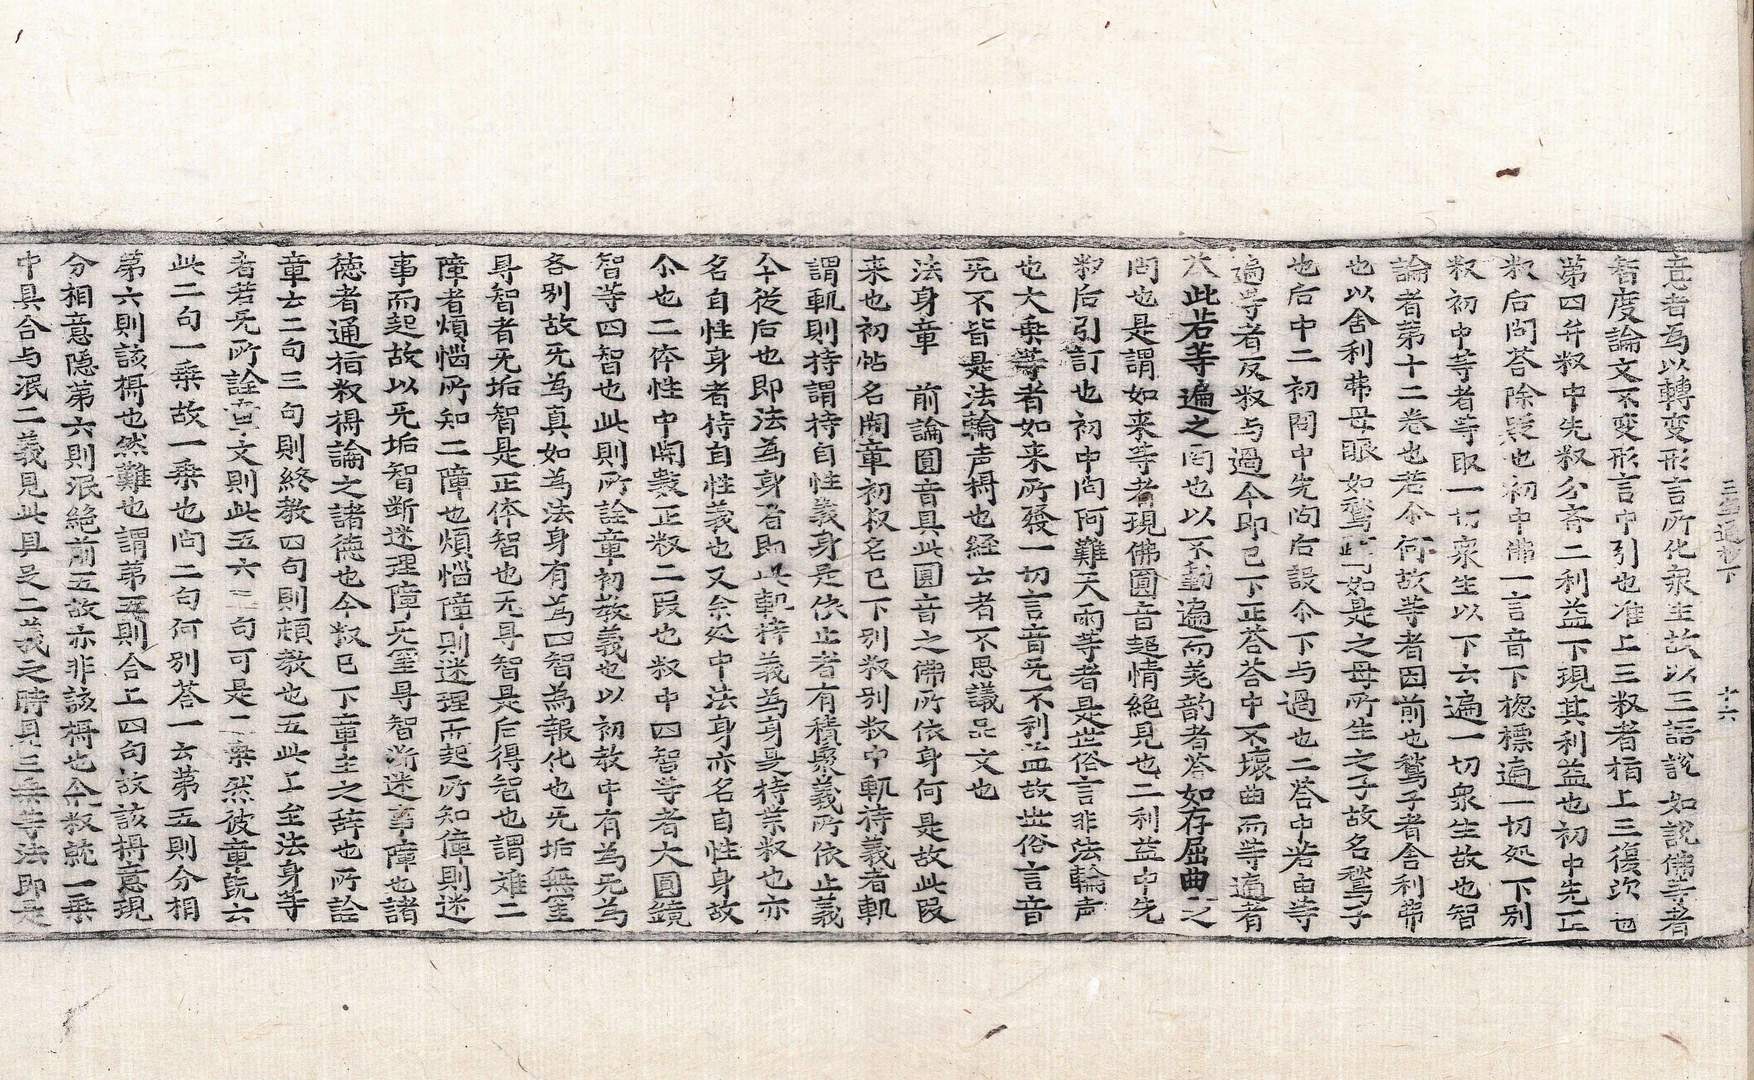 三宝章通抄下　十六
意者為以轉變形言所化衆生故以三語說如說佛等者
智度論文不変形言中引也准上三叙者指上三復次也
第四弁叙中先叙分斉二利益下現其利益也初中先正
叙后问答除疑也初中佛一言音下揔標遍一切処下別
叙初中等者等取一切衆生以下六遍一切衆生故也智
論者第十二卷也若尒何故等者因前也鶖子者舎利弗
也以舍利弗母眼如鶖鷺如是之母所生之子故名鶖子
也后中二初问中先问后設尒下与過也二荅中若由等
遍等者反叙与過今即已下正荅荅中不壞曲而等遍者
此若等遍之问也以不動遍而羙韵者荅如存屈曲之
问也是謂如来等者現佛圓音超情絶見也二利益中先
叙后引訂也初中问何難天雨等者是世俗言非法輪声
也大乗等者如来所發一切言音无不利益故世俗言音
无不皆是法輪声㭾也経云者不思議品文也
法身章　前論圓音具此圓音之佛所依身何是故此叚
来也初帖名開章初叙名已下別叙別叙中軌持義者軌
謂軌則持謂持自性義身是依止者有積聚義所依止義
今十從后也即法為身者即此軌持義為身是持業叙也亦
名自性身者持自性義也又余処中法身亦名自性身故
尒也二体性中開数正叙二叚也叙中四智等者大圓鏡
智等四智也此則所詮章初教義也以初教中有為无為
各別故无為真如為法身有為四智為報化也无垢無罣
㝵智者无垢智是正体智也无㝵智是后得智也謂难二
障者煩惱所知二障也煩惱障則迷理而起所知障則迷
事而起故以无垢智断迷理障无罣㝵智断迷事障也諸
徳者通指叙㭾論之諸徳也今叙已下章主之辞也所詮
章云二句三句則終教四句則頓教也五此上至法身等
者若无所詮章文則此五六二句可是二乗然彼章既云
此二句一乗故一乗也问二句何別荅一云第五則分相
第六則該㭾也然難也謂第五則合上四句故該㭾意現
分相意隱第六則泯絶前五故亦非該㭾也今叙就一乗
中具合与泯二義見此具足二義之時具三乗等法即是